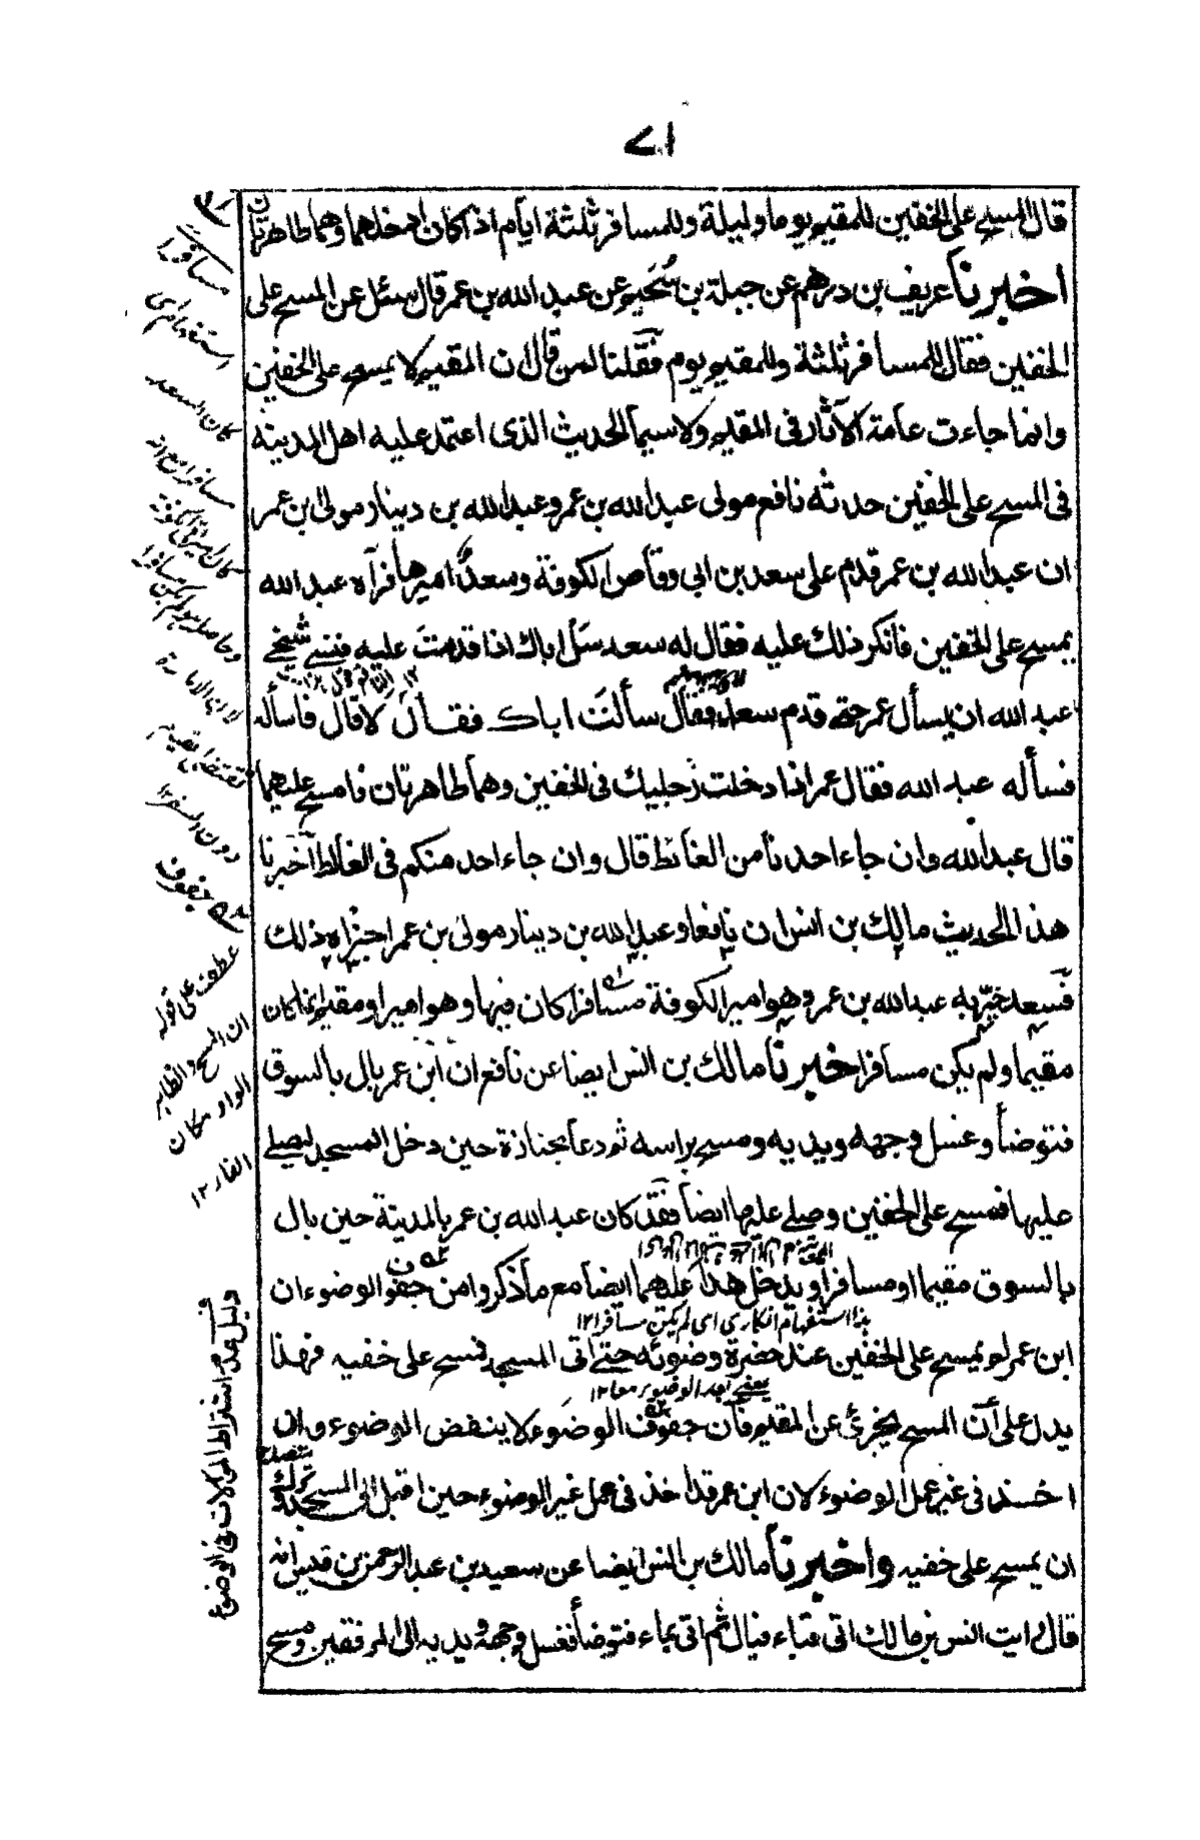 ٧١
قال المسح على الخفين للمقيم يوما وليلة وللمسافر ثلثة ايام اذا كان ادخلهما وهما طاهرتان
اخبرنا عريف بن درهم عن جبلة بن سُحَيم عن عبد الله بن عمر قال سئل عن المسح على
الخفين فقال للمسافر ثلثة وللمقيم يوم فقلنا لمن قال ان المقيم لا يمسح على الخفين
وانما جاءت عامة الآثار فى المقيم ولا سيما الحديث الذى اعتمد عليه اهل المدينة
فى المسح على الخفين حدثه نافع مولى عبد الله بن عمر وعبد الله بن دينار مولى بن عمر
ان عبد الله بن عمر قدم على سعد بن ابى وقاص الكوفة وسعدٌ اميرها فرآه عبد الله
يمسح على الخفين فانكر ذلك عليه فقال له سعد سَل اباك اذا قدمتَ عليه فنسى
عبد الله ان يسأل عمر حتى قدم سعد فقال سألتَ اباك فقال لا قال فاسأله
فسأله عبد الله فقال عمر اذا دخلت رجليك فى الخفين وهما طاهرتان فامسح عليهما
قال عبد الله وان جاء احدنا من الغائط قال وان جاء احد منكم فى الغائط اخبرنا
هذا الحديث مالك بن انس ان نافعا وعبد الله بن دينار مولى بن عمر اخبراه ذلك
فسعد خبّر به عبد الله بن عمر وهو امير الكوفة مسافرا كان فيها وهو امير او مقيم انما كان
مقيما ولم يكن مسافرا اخبرنا مالك بن انس ايضا عن نافع ان ابن عمر بال بالسوق
فتوضأ وغسل وجهه ويديه ومسح براسه ثم دعا بجنازة حين دخل المسجد ليصلى
عليها فمسح على الخفين وصلى عليها ايضا فقد كان عبد الله بن عمر بالمدينة حين بال
بالسوق مقيما او مسافرا ويدخل هذا عليهما ايضا مع ما ذكروا من جفوف الوضوء ان
هذا استفهام انكارى اى لم يكن مسافرا ١٢
ابن عمر لم يمسح على الخفين عند حضرة وضوئه حتى اتى المسجد فمسح على خفيه فهذا
يدل على أنّ المسح يجزئ عن المقيم فأن جفوف الوضوء لا ينقض الوضوء وان
اخذ فى غير عمل الوضوء لان ابن عمر قد اخذ فى عمل غير الوضوء حين اقبل الى المسجد
ان يمسح على خفيه واخبرنا مالك بن انس ايضا عن سعيد بن عبد الرحمن بن قيس انه
قال رايت انس بن مالك اتى قباء فبال ثم اتى بماء فتوضأ فغسل وجهه ويديه الى المرفقين ومسح
مسافرا
كان السعد
دون السفر ١٢
جفوف
عطف على قوله
ان المسح والظاهر
الواو مكان
الفاء ١٢
دليل عدم اشتراط الموالات فى الوضوء